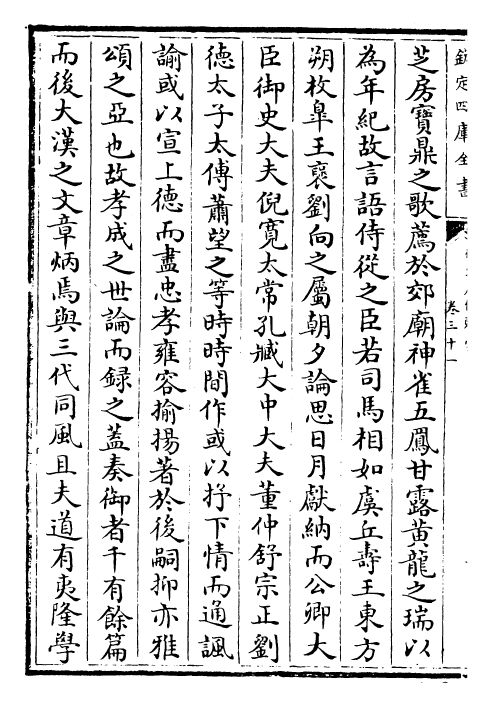 欽定四庫全書
卷三十一
芝房寶鼎之歌薦於郊廟神雀五鳳甘露黃龍之瑞以
為年紀故言語侍從之臣若司馬相如虞丘壽王東方
朔枚臯王襃劉向之屬朝夕論思日月獻納而公卿大
臣御史大夫倪寛太常孔臧大中大夫董仲舒宗正劉
德太子太傅蕭望之等時時間作或以抒下情而通諷
諭或以宣上德而盡忠孝雍容揄揚著於後嗣抑亦雅
頌之亞也故孝成之世論而録之蓋奏御者千有餘篇
而後大漢之文章炳焉與三代同風且夫道有夷隆學